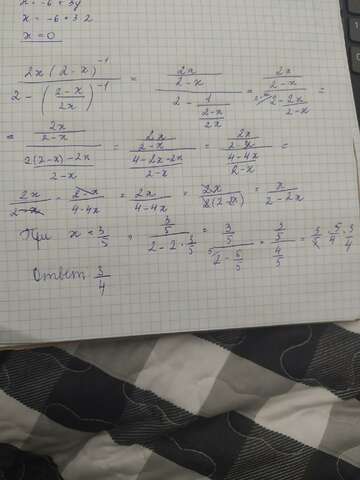 x = -6 + 3y
x = -6 + 3·2
x = 0
2x(2-x)^{-1} / (2 - ((2-x)/(2x))^{-1}) = (2x/(2-x)) / (2 - 1/((2-x)/(2x))) = (2x/(2-x)) / (2 - 2x/(2-x)) =
= (2x/(2-x)) / ((2(2-x)-2x)/(2-x)) = (2x/(2-x)) / ((4-2x-2x)/(2-x)) = (2x/(2-x)) / ((4-4x)/(2-x)) =
2x/(2-x) · (2-x)/(4-4x) = 2x/(4-4x) = 2x/(2(2-2x)) = x/(2-2x)
При x = 3/5, (3/5) / (2-2·3/5) = (3/5) / (2 - 6/5) = (3/5) / (4/5) = 3/5 · 5/4 = 3/4
Ответ 3/4